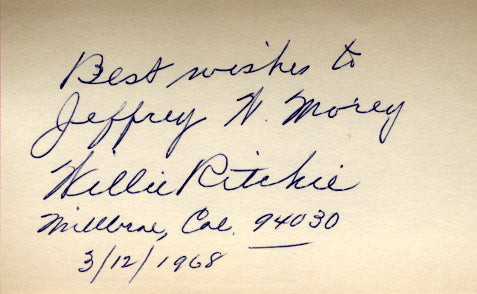 Best wishes to
Jeffrey W. Morey
Willie Ritchie
Millbrae, Cal. 94030
3/12/1968